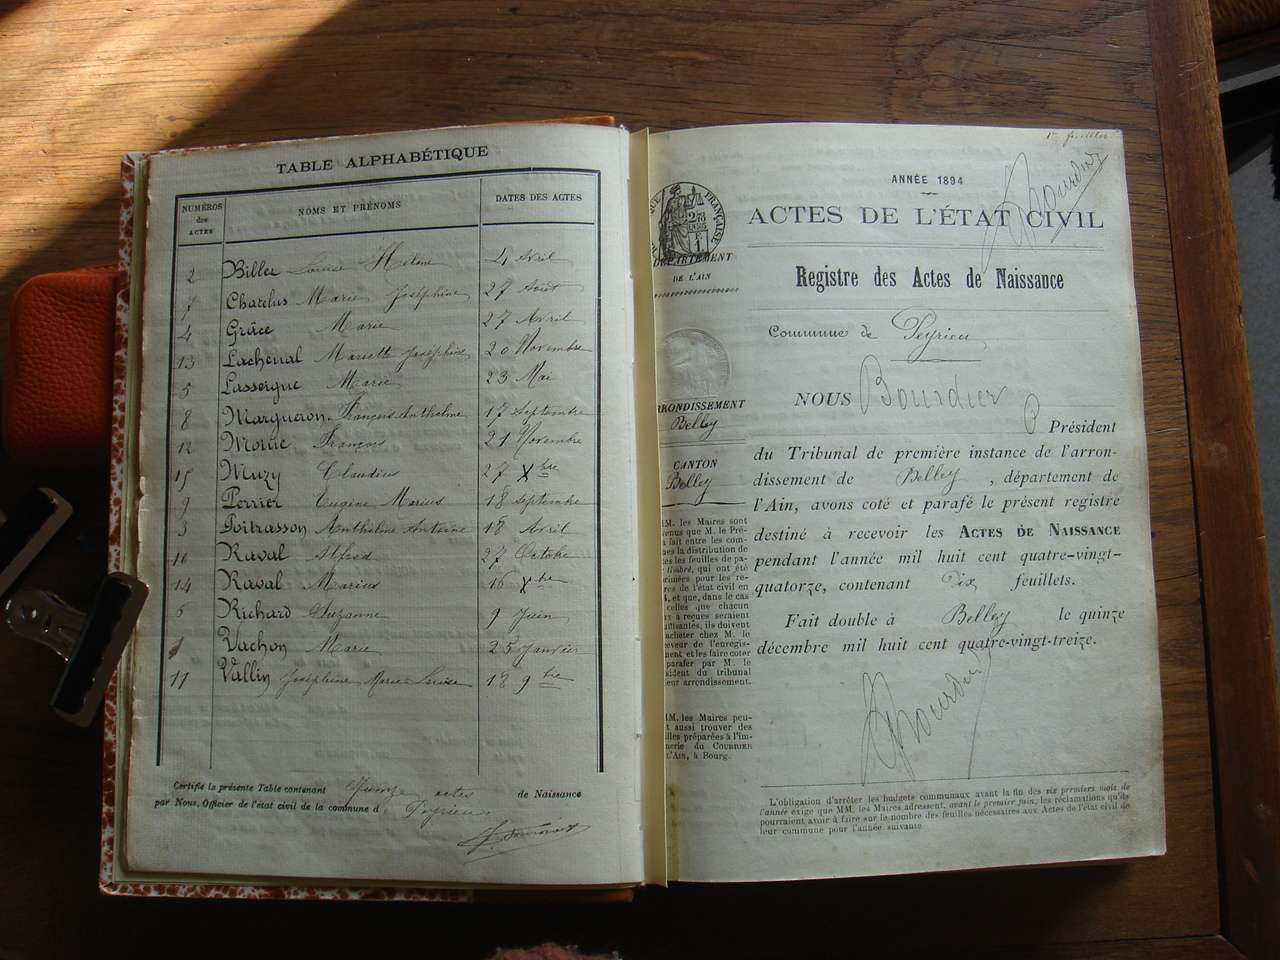 TABLE ALPHABÉTIQUE
NUMÉROS des ACTES NOMS ET PRÉNOMS DATES DES ACTES
2 Billet Louise Hélène 4 Avril
7 Chatelus Marie Joséphine 27 Août
4 Grâce Marie 27 Avril
13 Lachenal Mariette Joséphine 20 Novembre
5 Lassergue Marie 23 Mai
8 Margueron François Anthelme 17 Septembre
12 Moine François 21 Novembre
15 Muzy Claudius 27 Xbre
9 Perrier Eugène Marius 18 Septembre
3 Poitrasson Anthelme Antoine 18 Avril
10 Raval Alfred 27 Octobre
14 Raval Marius 16 Xbre
6 Richard Suzanne 9 Juin
1 Vachon Marie 25 Janvier
11 Vallin Joséphine Marie Louise 18 9bre
Certifié la présente Table contenant Quinze actes de Naissance
par Nous, Officier de l'état civil de la commune d Peyrieu.
ANNÉE 1894
ACTES DE L'ÉTAT CIVIL
Bourdier
FRANÇAISE
DÉPARTEMENT
DE L'AIN
Registre des Actes de Naissance
Commune de Peyrieu
RRONDISSEMENT
Belley
CANTON
Belley
NOUS Bourdier
Président
du Tribunal de première instance de l'arron-
dissement de Belley, département de
l'Ain, avons coté et parafé le présent registre
destiné à recevoir les ACTES DE NAISSANCE
pendant l'année mil huit cent quatre-vingt-
quatorze, contenant Dix feuillets.
Fait double à Belley le quinze
décembre mil huit cent quatre-vingt-treize.
Bourdier
MM. les Maires sont
venus que M. le Pré-
a fait entre les com-
es la distribution de
es feuilles de pa-
timbré, qui ont été
rimées pour les re-
es de l'état civil en
4, et que, dans le cas
celles que chacun
x a reçues seraient
ffisantes, ils doivent
acheter chez M. le
ceveur de l'enregis-
ment et les faire coter
parafer par M. le
sident du tribunal
leur arrondissement.
MM. les Maires peu-
t aussi trouver des
illes préparées à l'im-
merie du COURRIER
L'AIN, à Bourg.
L'obligation d'arrêter les budgets communaux avant la fin des six premiers mois de
l'année exige que MM. les Maires adressent, avant le premier juin, les réclamations qu'ils
pourraient avoir à faire sur le nombre des feuilles nécessaires aux Actes de l'état civil de
leur commune pour l'année suivante